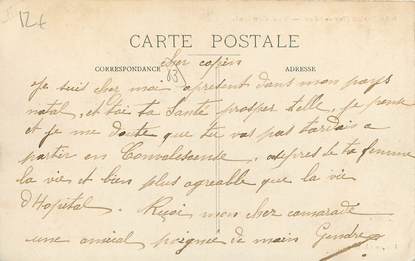 12€
CARTE POSTALE
CORRESPONDANCE
ADRESSE
63
cher copin
Je suis cher moi apresent dans mon pays
natal, et toi ta Santé prosper telle, je pense
et je me doute que tu vas pas tardais a
partir en Convalescende, aupres de ta femme
la vie et bien plus agreable que la vie
d'Hopital. Reçoi mon cher camarade
une amical poignée de main Gendre